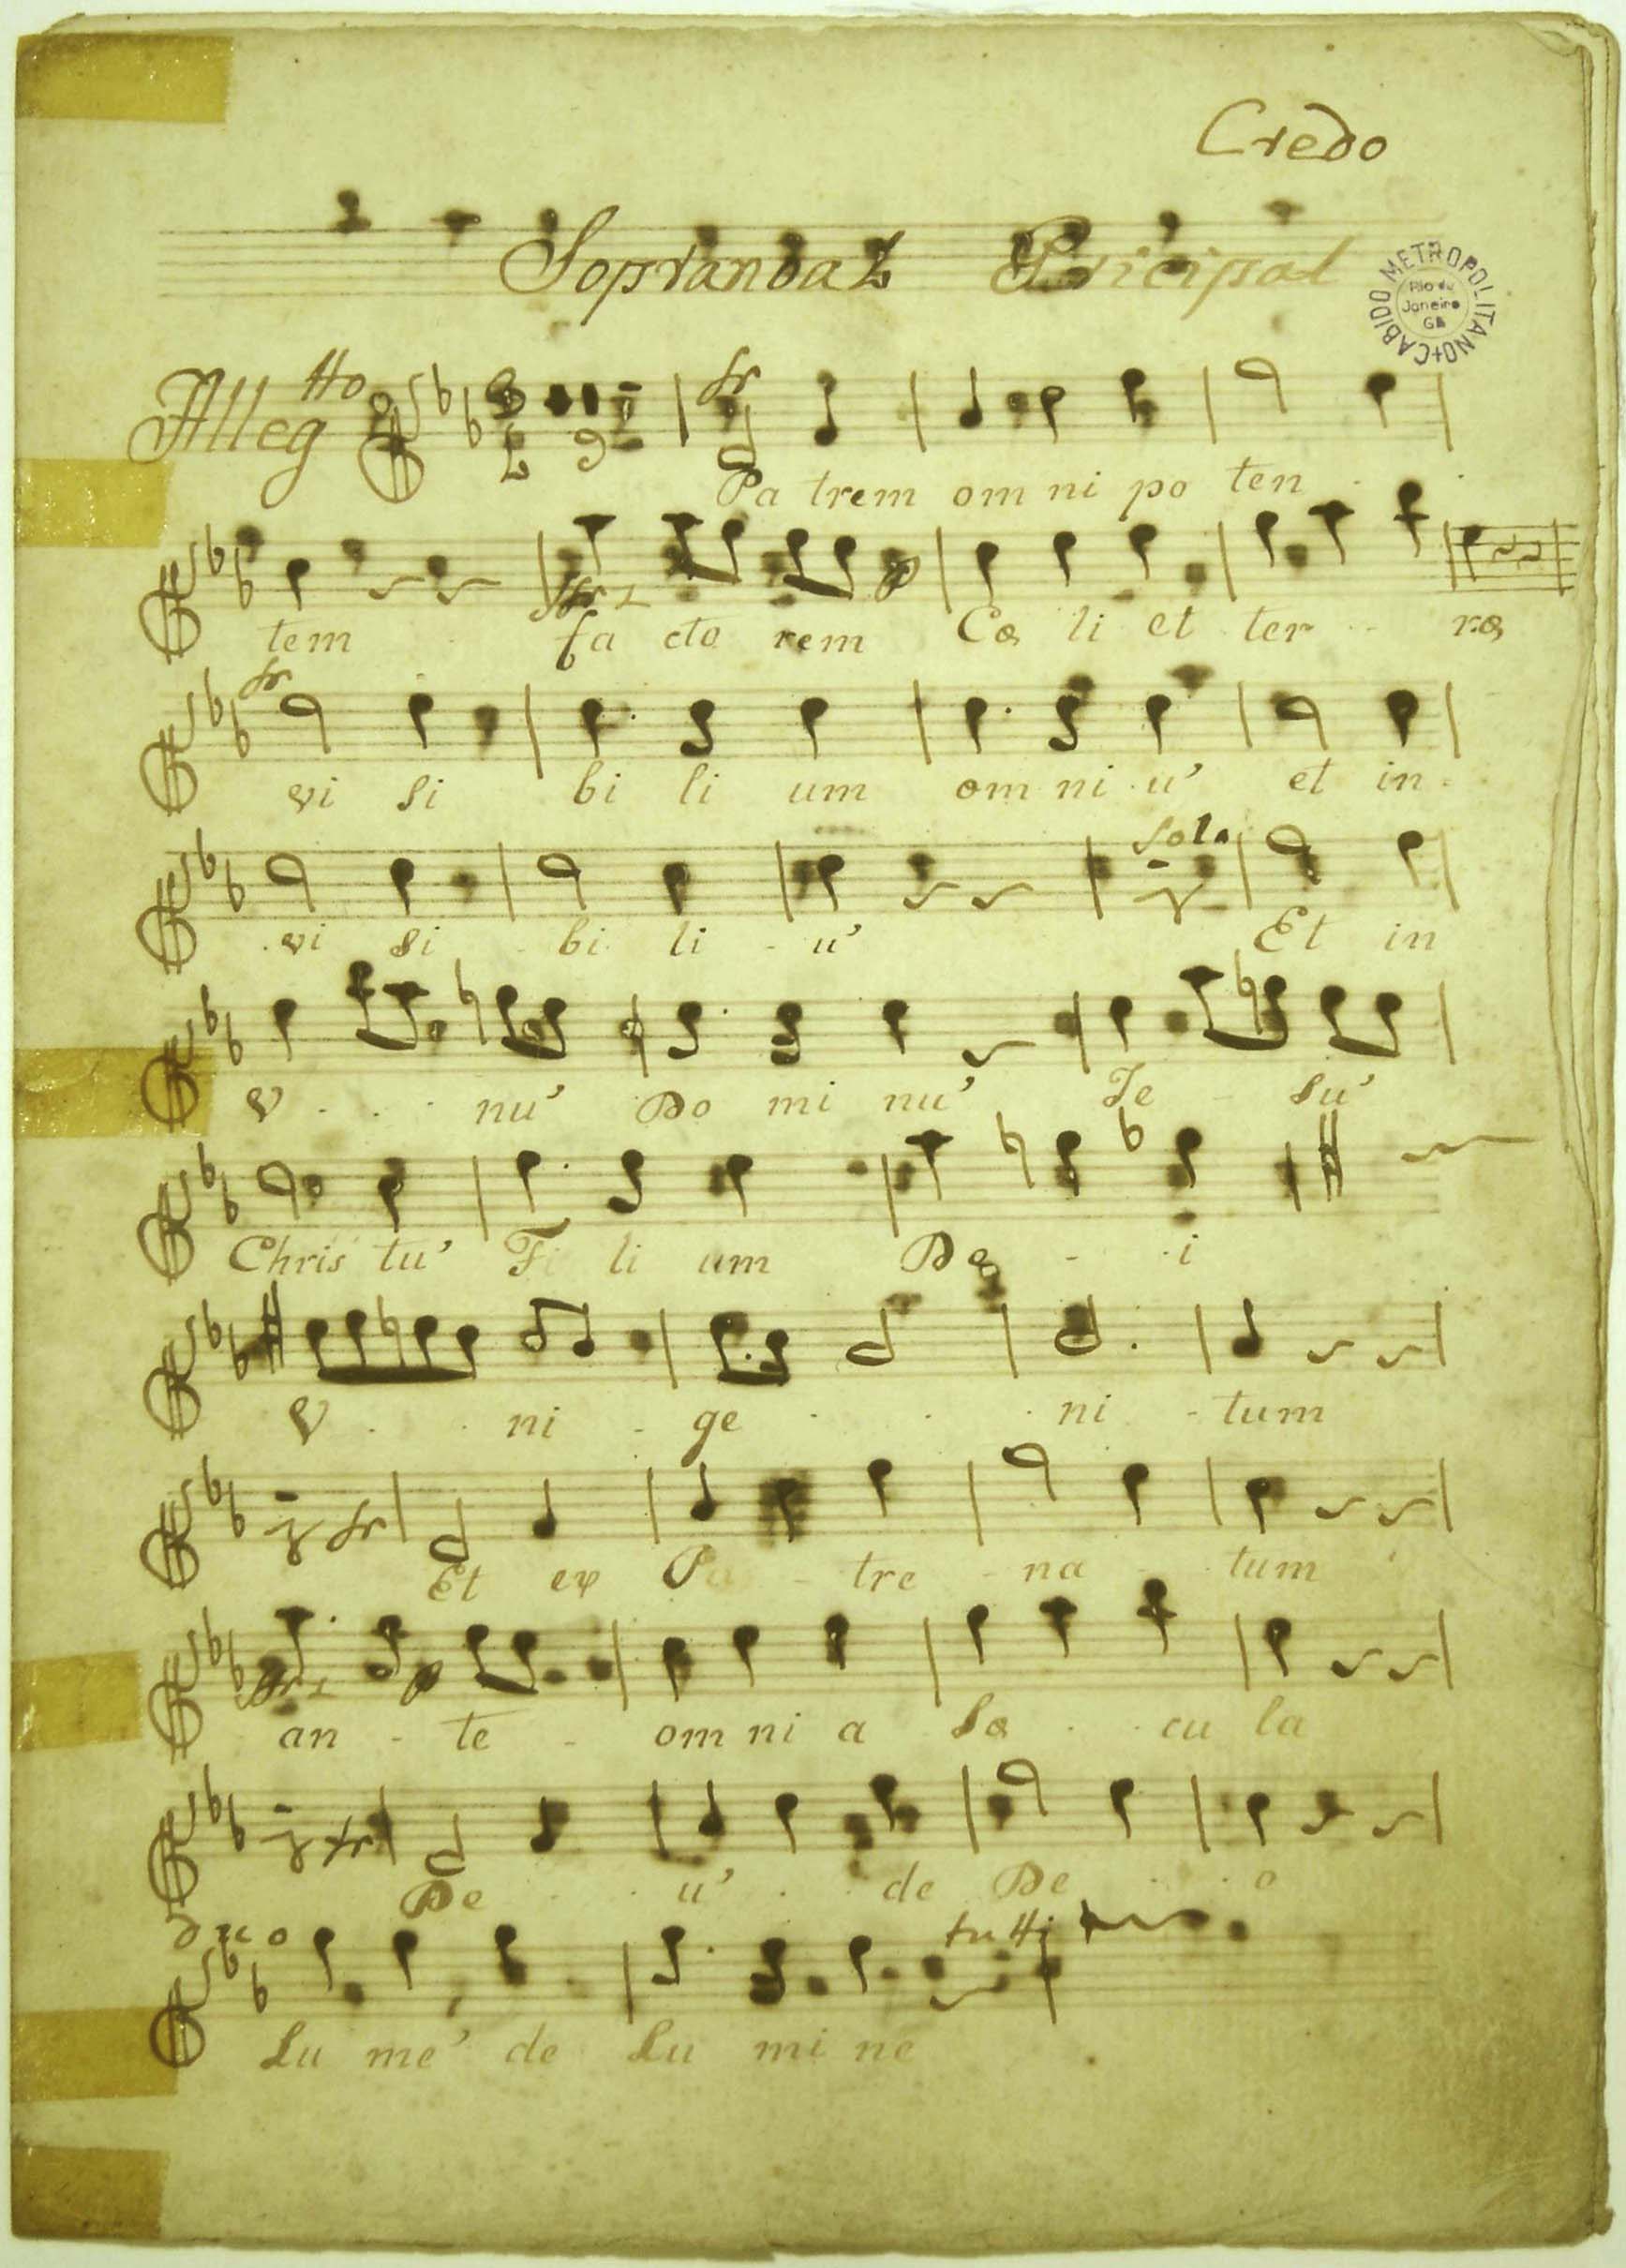 Credo
Soprano a 2 Pricipal
CABIDO METROPOLITANO
Rio de
Janeiro
GB
Allegtto
Pa trem om ni po ten
tem fa cto rem Cœ li et ter ræ
vi si bi li um om ni u' et in
Solo
vi si bi li u' Et in
V nu' Do mi nu' Je su'
Chris tu' Fi li um De i
V ni ge ni tum
Et ex Pa tre na tum
an te om ni a Sæ cu la
De u' de De o
duo tutti
Lu me' de Lu mi ne